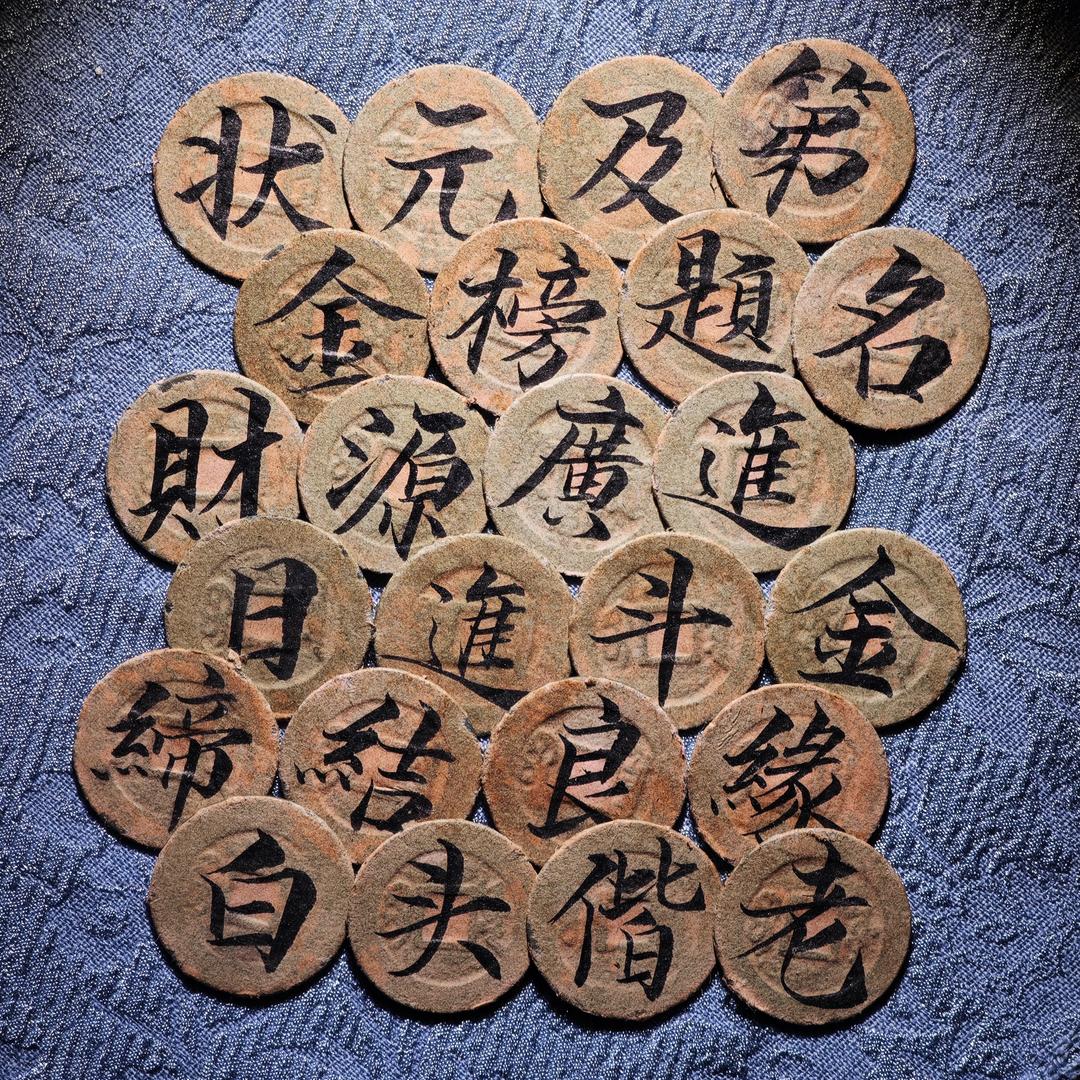 状元及第
金榜題名
財源廣進
日進斗金
締結良緣
白头偕老